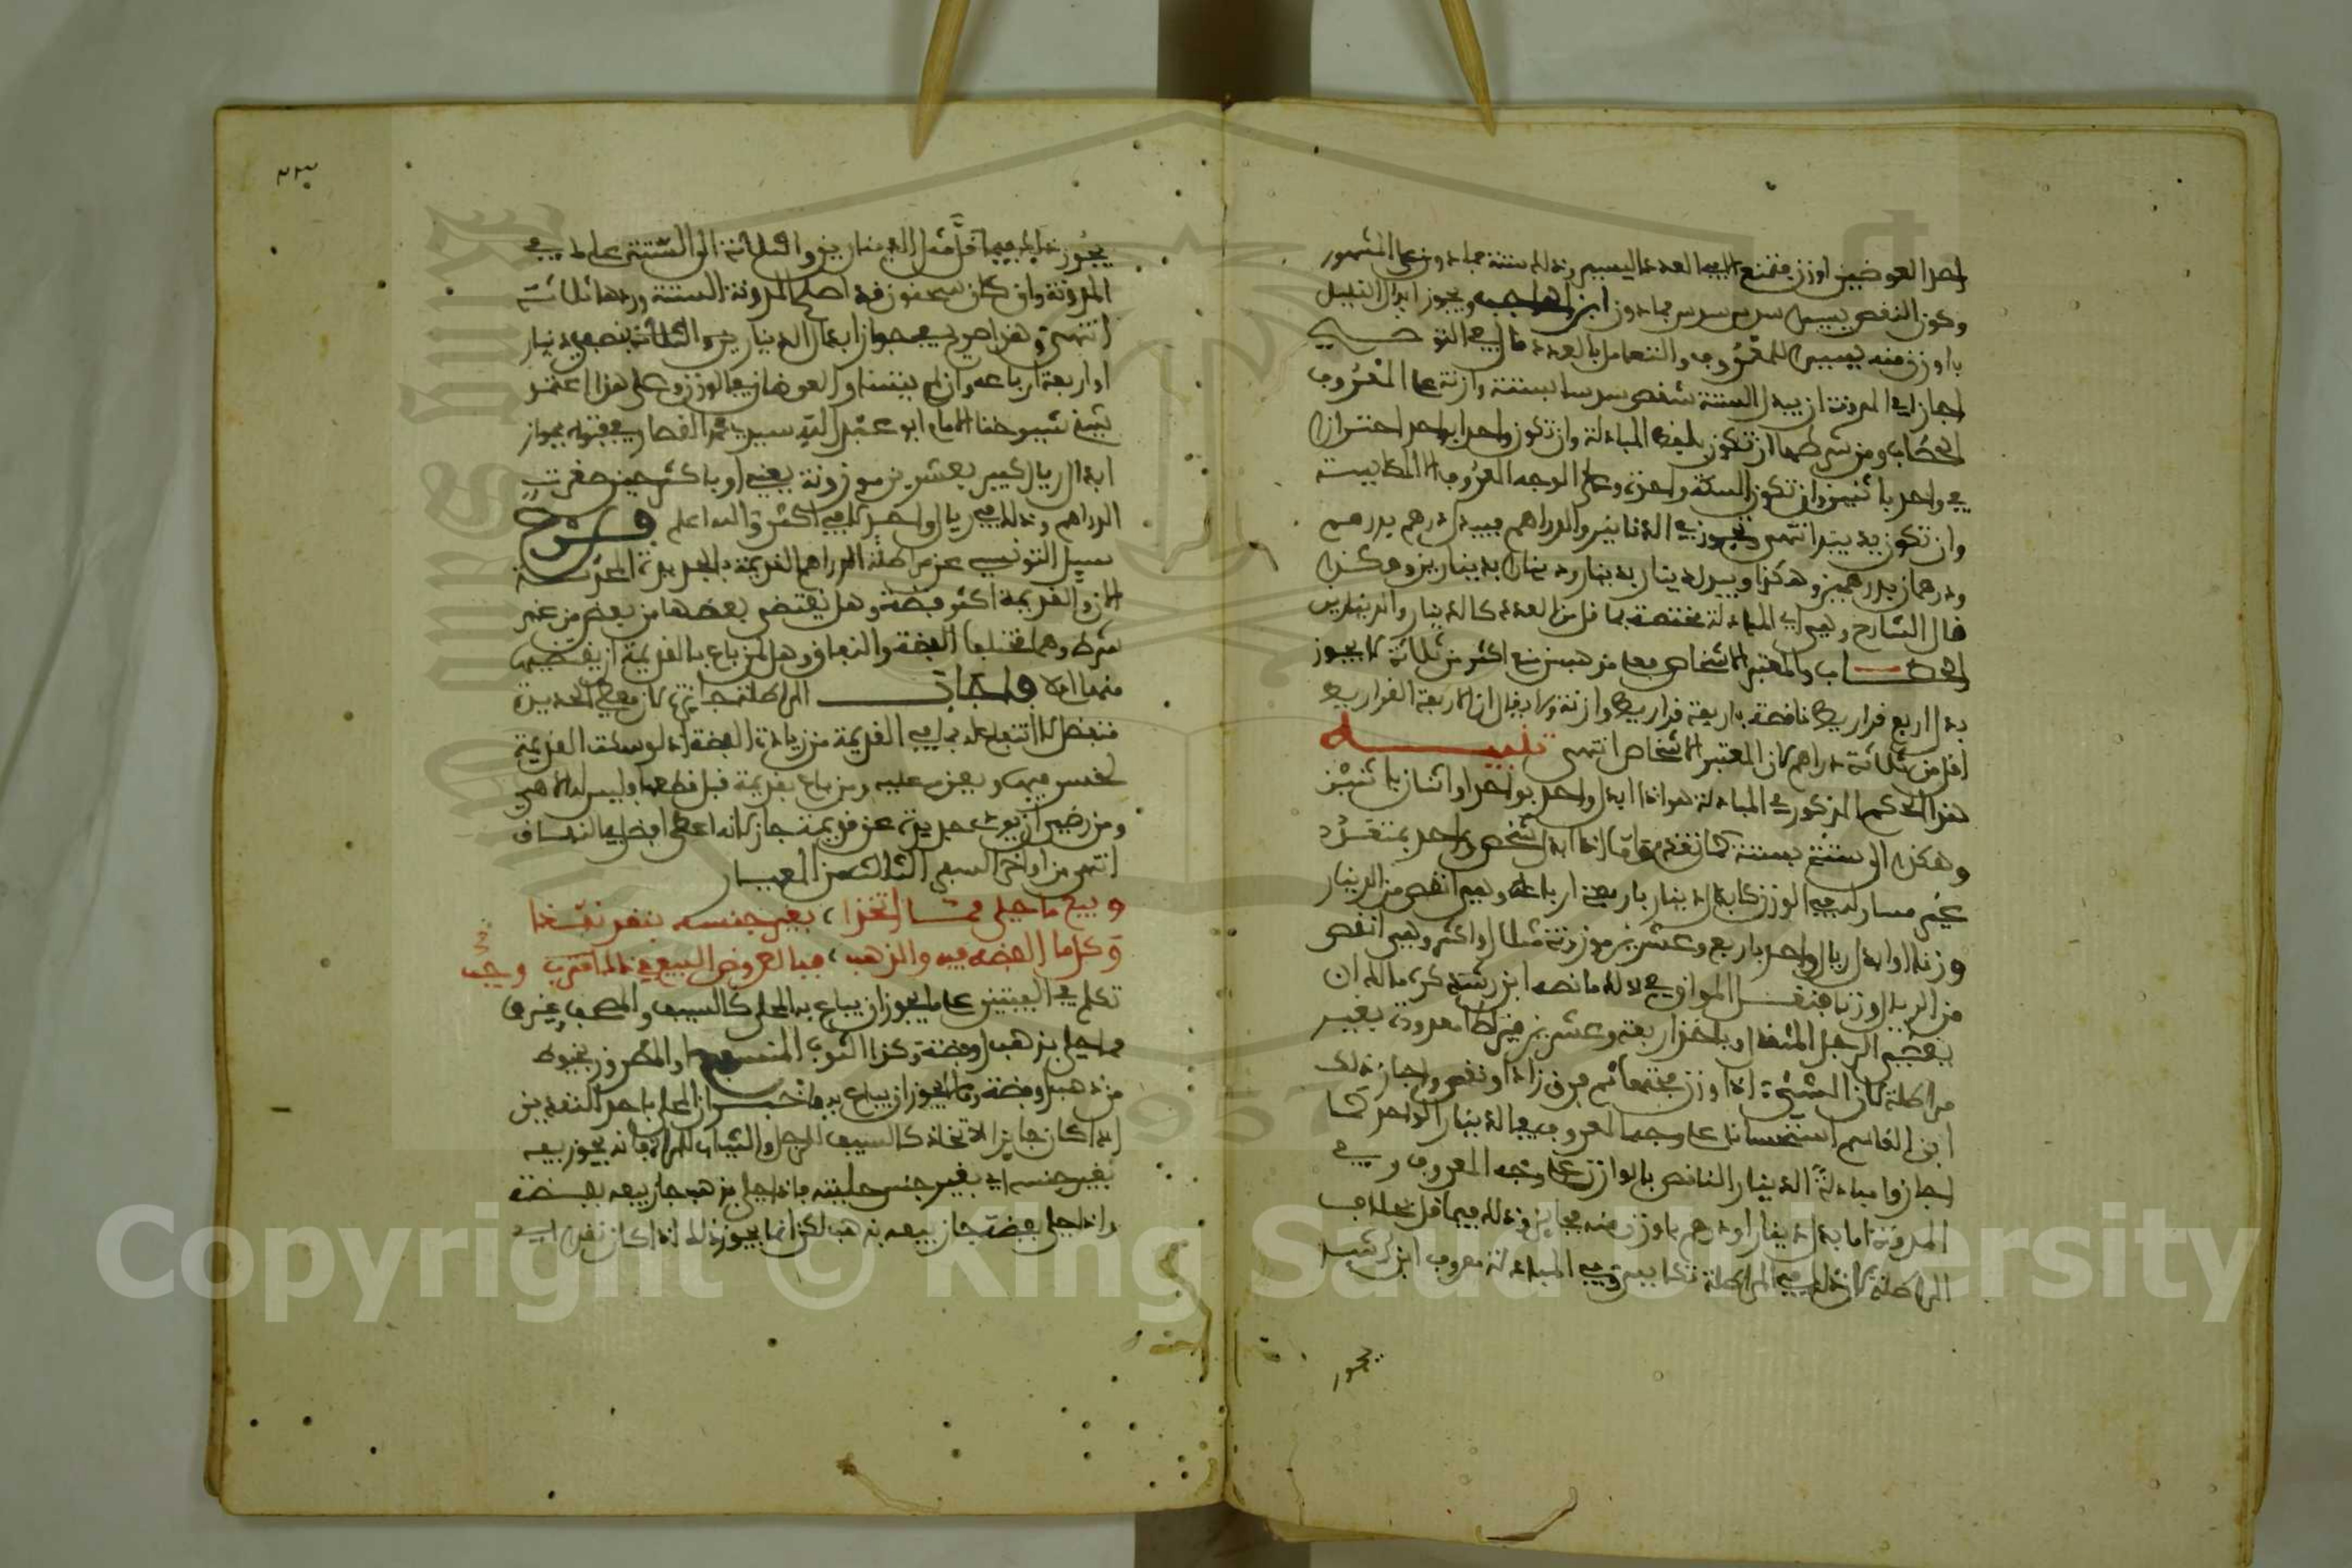 احد العوضين اوزن فتمتنع الا في العدد اليسير وذلك ستة فما دون على المشهور
وكون النقص يسيرا سدس سدس فما دون ابن الحاجب ويجوز ابدال القليل
باوزن منه يسيرا للمعروف والتعامل بالعدد قال في التوضيح
اجاز في المدونة ان يبدل الستة تنقص سدسا بستة وازنة على المعروف
الحطاب ومن شرطها ان تكون بلفظ المبادلة وان تكون واحدا بواحد احترازا
من واحد باثنين وان تكون السكة واحدة وعلى الوجه المعروف لا المكايسة
وان تكون يدا بيد انتهى وتجوز في الدنانير والدراهم فيبدل درهم بدرهم
ودرهمان بدرهمين وهكذا ويبدل دينار بدينار وديناران بدينارين وهكذا
قال الشارح وهي اي المبادلة مختصة بما قل من العدد كالدينار والدينارين
الحطاب والمعتبر الاشخاص فعلى مذهب من منع اكثر من ثلاثة لا يجوز
بدل اربع قراريط ناقصة باربعة قراريط وازنة ولا يقال ان الاربعة القراريط
اقل من ثلاثة دراهم لان المعتبر الاشخاص انتهى تنبيه
هذا الحكم المذكور في المبادلة هو اذا ابدل واحد بواحد او اثنان باثنين
وهكذا الى ستة بستة كما تقدم واما اذا ابدل شخص واحد بمتعدد
غير مساو له في الوزن كابدال دينار باربعة ارباعه وهي انقص من الدينار
وزنا او ابدال ريال واحد باربع وعشرين موزونة مثلا او اكثر وهي انقص
من الريال وزنا فنقل المواق في ذلك ما نصه ابن رشد كره مالك ان
يعطي الرجل المثقال وياخذ اربعة وعشرين قيراطا معدودة بغير
مراطلة لان الشيء اذا وزن مجتمعا ثم فرق زاد او نقص واجاز ذلك
ابن القاسم استحسانا على وجه المعروف في الدينار الواحد كما
اجازوا مبادلة الدينار الناقص بالوازن على وجه المعروف وفي
المدونة اما بدل دينار او درهم باوزن منه فجايز وذلك فيما قل بخلاف
المراطلة لان ذلك في المراطلة تكايس وفي المبادلة معروف ابن رشد
يجوز
٢٣
يجوز ذلك فيما قل مثل الدينارين والثلاثة الى الستة على ما في
المدونة وان كان سحنون قد اصلح المدونة الستة وردها ثلاثة
انتهى وهذا صريح في جواز ابدال الدينارين والثلاثة بنصفي دينار
او اربعة ارباعه وان لم يتساو العوضان في الوزن وعلى هذا اعتمد
شيخ شيوخنا الامام ابو عبد الله سيدي محمد القصار في فتواه بجواز
ابدال ريال كبير بعشرين موزونة يعني او باكثر حين صغرت
الدراهم وذلك في ريال واحد لا في اكثر والله اعلم فرع
سيل التونسي عن مراطلة الدراهم القديمة بالجديدة المحدثة
الان والقديمة اكثر فضة وهل يقتضى بعضها من بعض من غير
شرط وهما مختلفا الفضة والنفاق وهل لمن باع بالقديمة ان يقتضي
منها ام لا فاجاب المراطلة جايزة لان معطي الجديدة
متفضل لا انتفاع له بما في القديمة من زيادة الفضة اذ لو سبكت القديمة
لخسر فيها ويعز عليه ومن باع بقديمة قبل قطعها وليس له الا هي
ومن رضي ان يوخذ جديدة عن قديمة جاز لانه اعطى افضل في النفاق
انتهى من اواخر السفر الثالث من المعيار
وبيع ما حلي مما اتخذا بغير جنسه بنقد نفذا
وكل ما الفضة فيه والذهب فبالعروض البيع في ذاك وجب
تكلم في البيتين على ما يجوز ان يباع به المحلى كالسيف والمصحف وغيره
مما حلي بذهب او فضة وكذا الثوب المنسوج او المطروز بخيوط
من ذهب او فضة وما يجوز ان يباع به فاخبر ان المحلى باحد النقدين
اذا كان جايز الاتخاذ كالسيف للرجل والثياب للمراة فانه يجوز بيعه
بغير جنسه اي بغير جنس حليته فاذا حلي بذهب جاز بيعه بفضة
واذا حلي بفضة جاز بيعه بذهب لكن انما يجوز ذلك اذا كان نقدا اي
Copyright © King Saud University
1957